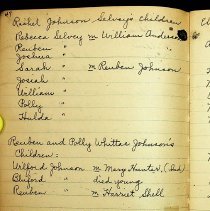 Rachel Johnson Selvey's Children
Rebecca Selvey m William Anderson
Reuben "
Joshua "
Sarah " m Reuben Johnson
Josiah "
William "
Polly "
Hulda "
Reuben and Polly Whittas Johnson's
Children:
Wilford Johnson m Mary Hunter, (Ind)
Buford " died young
Reuben " m Harriet Shell